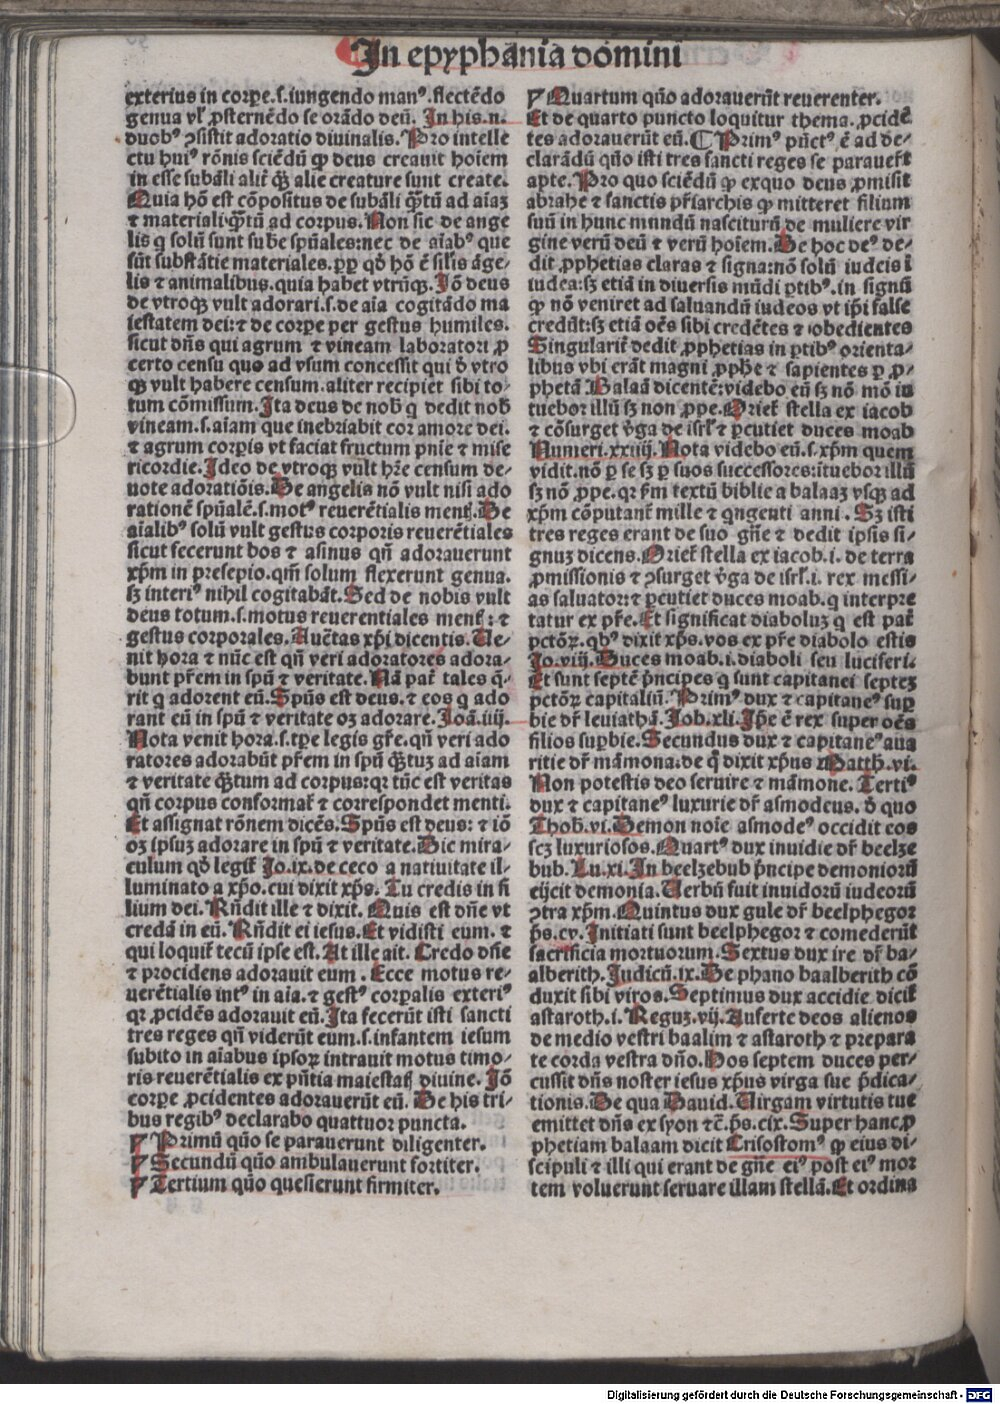 In epyphania domini
exterius in corpe.s.iungendo manꝰ.flectēdo
genua vl' ꝓsternēdo se orādo deū. In his.n.
duobꝰ ꝯsistit adoratio diuinalis. Pro intelle
ctu huiꝰ rōnis sciēdū ꝙ deus creauit hoīem
in esse subāli alit̄ ꝙ̄ alie creature sunt create.
Quia hō est cōpositus de subāli ꝙ̄tū ad aīaʒ
⁊ materiali ꝙ̄tū ad corpus. Non sic de ange
lis q solū sunt sube spūales:nec de aīabꝰ que
sūt substātie materiales.ꝓp qd̄ hō ē sil'is āge⸗
lis ⁊ animalibus.quia habet vtrūqꝫ. Iō deus
de vtroqꝫ vult adorari.s.de aīa cogitādo ma
iestatem dei:⁊ de corpe per gestus humiles.
sicut dn̄s qui agrum ⁊ vineam laboratori ꝓ
certo censu quo ad vsum concessit qui d̄ vtro
qꝫ vult habere censum.aliter recipiet sibi to⸗
tum cōmissum. Ita deus de nob̄ q dedit nob̄
vineam.s.aīam que inebriabit cor amore dei.
⁊ agrum corpis vt faciat fructum pnīe ⁊ mise
ricordie. Ideo de vtroqꝫ vult hr̄e censum de⸗
uote adoratiōis. De angelis nō vult nisi ado
rationē spūalē.s.motꝰ reuerētialis mentꝭ. De
aīalibꝰ solū vult gestus corporis reuerētiales
sicut fecerunt bos ⁊ asinus qn̄ adorauerunt
xp̄m in presepio.qm̄ solum flexerunt genua.
sꝫ interiꝰ nihil cogitabāt. Sed de nobis vult
deus totum.s.motus reuerentiales mentꝭ:⁊
gestus corporales. Auctas xp̄i dicentis. Ve⸗
nit hora ⁊ nūc est qn̄ veri adoratores adora⸗
bunt pr̄em in spū ⁊ veritate. Nā pat̄ tales q̄⸗
rit q adorent eū. Spūs est deus.⁊ eos q ado
rant eū in spū ⁊ veritate oꝫ adorare. Ioā.iiij.
Nota venit hora.s.tp̄e legis gr̄e.qn̄ veri ado
ratores adorabūt pr̄em in spū ꝙ̄tuʒ ad aīam
⁊ veritate ꝙ̄tum ad corpus:qꝛ tūc est veritas
qn̄ corpus conformat̄ ⁊ correspondet menti.
Et assignat rōnem dicēs. Spūs est deus:⁊ iō
oꝫ ipsuʒ adorare in spū ⁊ veritate. Hic mira⸗
culum qd̄ legit̄ Io.ix.de ceco a natiuitate il⸗
luminato a xp̄o.cui dixit xp̄s. Tu credis in fi
lium dei. Rn̄dit ille ⁊ dixit. Quis est dn̄e vt
credā in eū. Rn̄dit ei iesus. Et vidisti eum.⁊
qui loquit̄ tecū ipse est. At ille ait. Credo dn̄e
⁊ procidens adorauit eum. Ecce motus re⸗
uerētialis intꝰ in aīa.⁊ gestꝰ corpalis exteriꝰ
qꝛ ꝓcidēs adorauit eū. Ita fecerūt isti sancti
tres reges qn̄ viderūt eum.s.infantem iesum
subito in aīabus ipsoꝝ intrauit motus timo⸗
ris reuerētialis ex pn̄tia maiestatꝭ diuine. Iō
corpe ꝓcidentes adorauerūt eū. De his tri⸗
bus regibꝰ declarabo quattuor puncta.
Primū quō se parauerunt diligenter.
Secundū quō ambulauerunt fortiter.
Tertium quō quesierunt firmiter.
Quartum quō adorauerūt reuerenter.
Et de quarto puncto loquitur thema. ꝓcidē
tes adorauerūt eū. ¶ Primꝰ pūctꝰ ē ad de⸗
clarādū quō isti tres sancti reges se parauer̄t
apte. Pro quo sciēdū ꝙ exquo deus ꝓmisit
abrahe ⁊ sanctis pr̄iarchis ꝙ mitteret filium
suū in hunc mundū nasciturū de muliere vir
gine verū deū ⁊ verū hoīem. De hoc deꝰ de⸗
dit ꝓphetias claras ⁊ signa:nō solū iudeis ī
iudea:sꝫ etiā in diuersis mūdi ptibꝰ.in signū
ꝙ nō veniret ad saluandū iudeos vt ip̄i false
credūt:sꝫ etiā oēs sibi credētes ⁊ obedientes
Singularit̄ dedit ꝓphetias in ptibꝰ orienta⸗
libus vbi erāt magni ꝓphe ⁊ sapientes ꝑ ꝓ⸗
phetā Balaā dicentē:videbo eū sꝫ nō mō in
tuebor illū sꝫ non ꝓpe. Oriet̄ stella ex iacob
⁊ cōsurget v̄ga de isrl' ⁊ ꝑcutiet duces moab
Numeri.xxiiij. Nota videbo eū.s.xp̄m quem
vidit.nō ꝑ se sꝫ ꝑ suos successores:ītuebor illū
sꝫ nō ꝓpe.qꝛ fm textū biblie a balaaʒ vsqꝫ ad
xp̄m cōputant̄ mille ⁊ qngenti anni. Sꝫ isti
tres reges erant de suo gn̄e ⁊ dedit ipsis si⸗
gnuʒ dicens. Oriet̄ stella ex iacob.i.de terra
ꝓmissionis ⁊ ꝯsurget v̄ga de isrl'.i. rex messi⸗
as saluator:⁊ ꝑcutiet duces moab.q interpre
tatur ex pr̄e. Et significat diaboluʒ q est pat̄
pctōꝝ.qbꝰ dixit xp̄s.vos ex pr̄e diabolo estis
Io.viij. Duces moab.i.diaboli seu luciferi.
Et sunt septē pncipes q sunt capitanei septeʒ
pctōꝝ capitaliū. Primꝰ dux ⁊ capitaneꝰ suꝑ
bie dr̄ leuiathā. Iob.xli. Ip̄e ē rex super oēs
filios suꝑbie. Secundus dux ⁊ capitaneꝰ aua
ritie dr̄ māmona.de q̄ dixit xp̄us Matth.vi.
Non potestis deo seruire ⁊ māmone. Tertiꝰ
dux ⁊ capitaneꝰ luxurie dr̄ asmodeus. d̄ quo
Thob.vi. Demon noīe asmodeꝰ occidit eos
scꝫ luxuriosos. Quartꝰ dux inuidie dr̄ beelze
bub. Lu.xi. In beelzebub pncipe demoniorū
eijcit demonia. Verbū fuit inuidorū iudeorū
ꝯtra xp̄m. Quintus dux gule dr̄ beelphegor
ps.cv. Initiati sunt beelphegor ⁊ comederūt
sacrificia mortuorum. Sextus dux ire dr̄ ba⸗
alberith. Iudicū.ix. De phano baalberith cō
duxit sibi viros. Septimus dux accidie dicit̄
astaroth.i. Reguʒ.vij. Auferte deos alienos
de medio vestri baalim ⁊ astaroth ⁊ prepara
te corda vestra dn̄o. Hos septem duces per⸗
cussit dn̄s noster iesus xp̄us virga sue p̄dica⸗
tionis. De qua Dauid. Virgam virtutis tue
emittet dn̄s ex syon ⁊c̄.ps.cix. Super hanc ꝓ
phetiam balaam dicit Crisostomꝰ ꝙ eius di⸗
scipuli ⁊ illi qui erant de gn̄e eiꝰ post eiꝰ mor
tem voluerunt seruare illam stellā. Et ordina
Digitalisierung gefördert durch die Deutsche Forschungsgemeinschaft - DFG